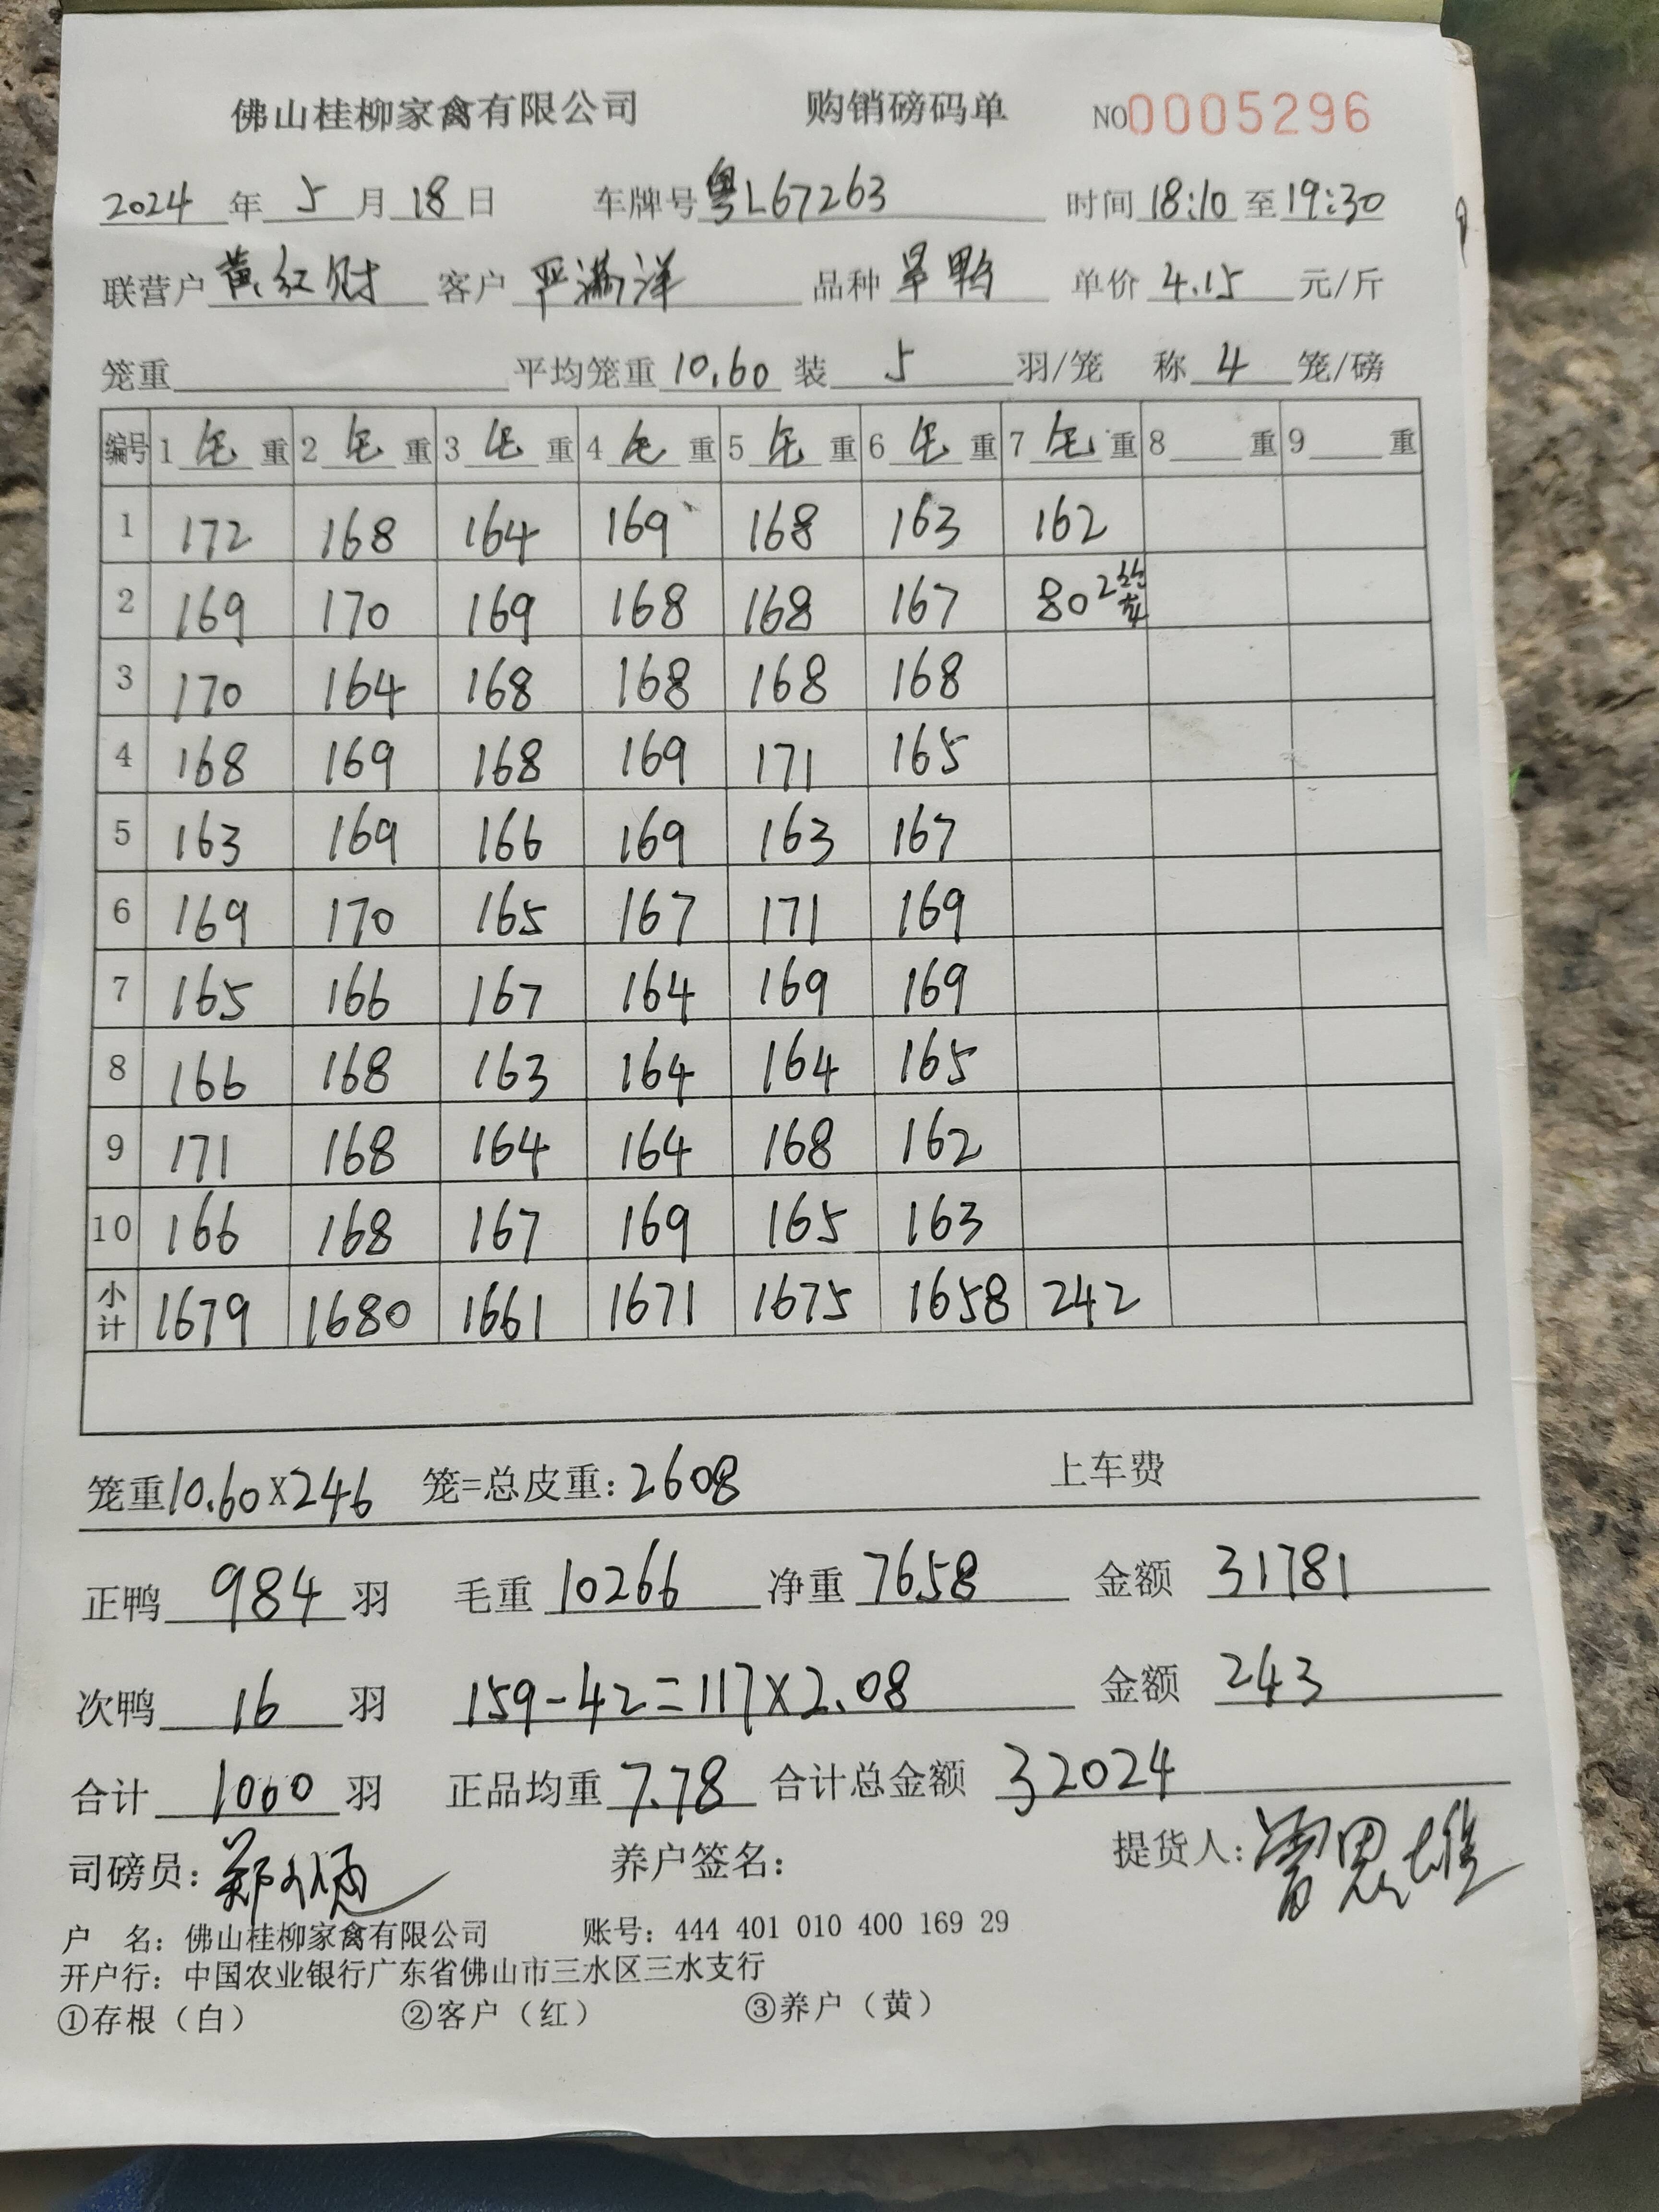 佛山桂柳家禽有限公司 购销磅码单 NO0005296
2024年5月18日 车牌号粤L67263 时间18:10至19:30
联营户黄红财 客户严满洋 品种旱鸭 单价4.15元/斤
笼重 平均笼重10.60装5羽/笼 称4笼/磅
编号 1毛重 2毛重 3毛重 4毛重 5毛重 6毛重 7毛重 8重 9重
1 172 168 164 169 168 163 162
2 169 170 169 168 168 167 80 2笼
3 170 164 168 168 168 168
4 168 169 168 169 171 165
5 163 169 166 169 163 167
6 169 170 165 167 171 169
7 165 166 167 164 169 169
8 166 168 163 164 164 165
9 171 168 164 164 168 162
10 166 168 167 169 165 163
小计 1679 1680 1661 1671 1675 1658 242
笼重10.60X246 笼=总皮重:2608 上车费
正鸭984羽 毛重10266 净重7658 金额31781
次鸭16羽 159-42=117X2.08 金额243
合计1000羽 正品均重7.78 合计总金额32024
司磅员: 养户签名: 提货人:雷恩雄
户 名: 佛山桂柳家禽有限公司 账号: 444 401 010 400 169 29
开户行: 中国农业银行广东省佛山市三水区三水支行
①存根（白） ②客户（红） ③养户（黄）